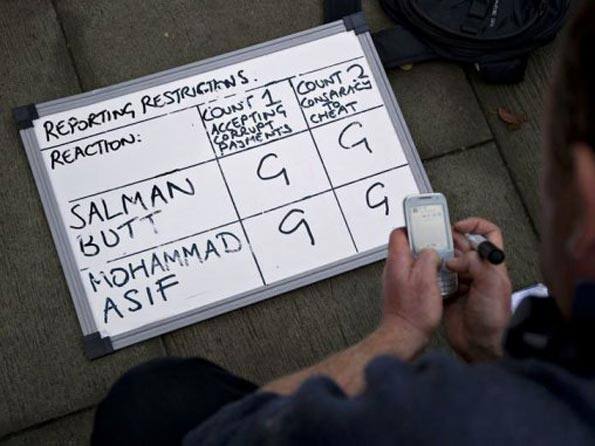 REPORTING RESTRICTIONS.
REACTION:
COUNT 1
ACCEPTING
CORRUPT
PAYMENTS
COUNT 2
CONSPARACY
TO
CHEAT
SALMAN
BUTT
G
G
MOHAMMAD
ASIF
G
G